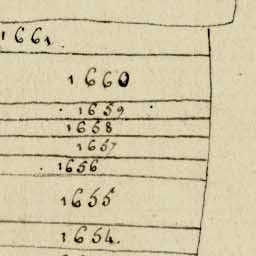 1661.
1660
1659
1658
1657
1656
1655
1654.